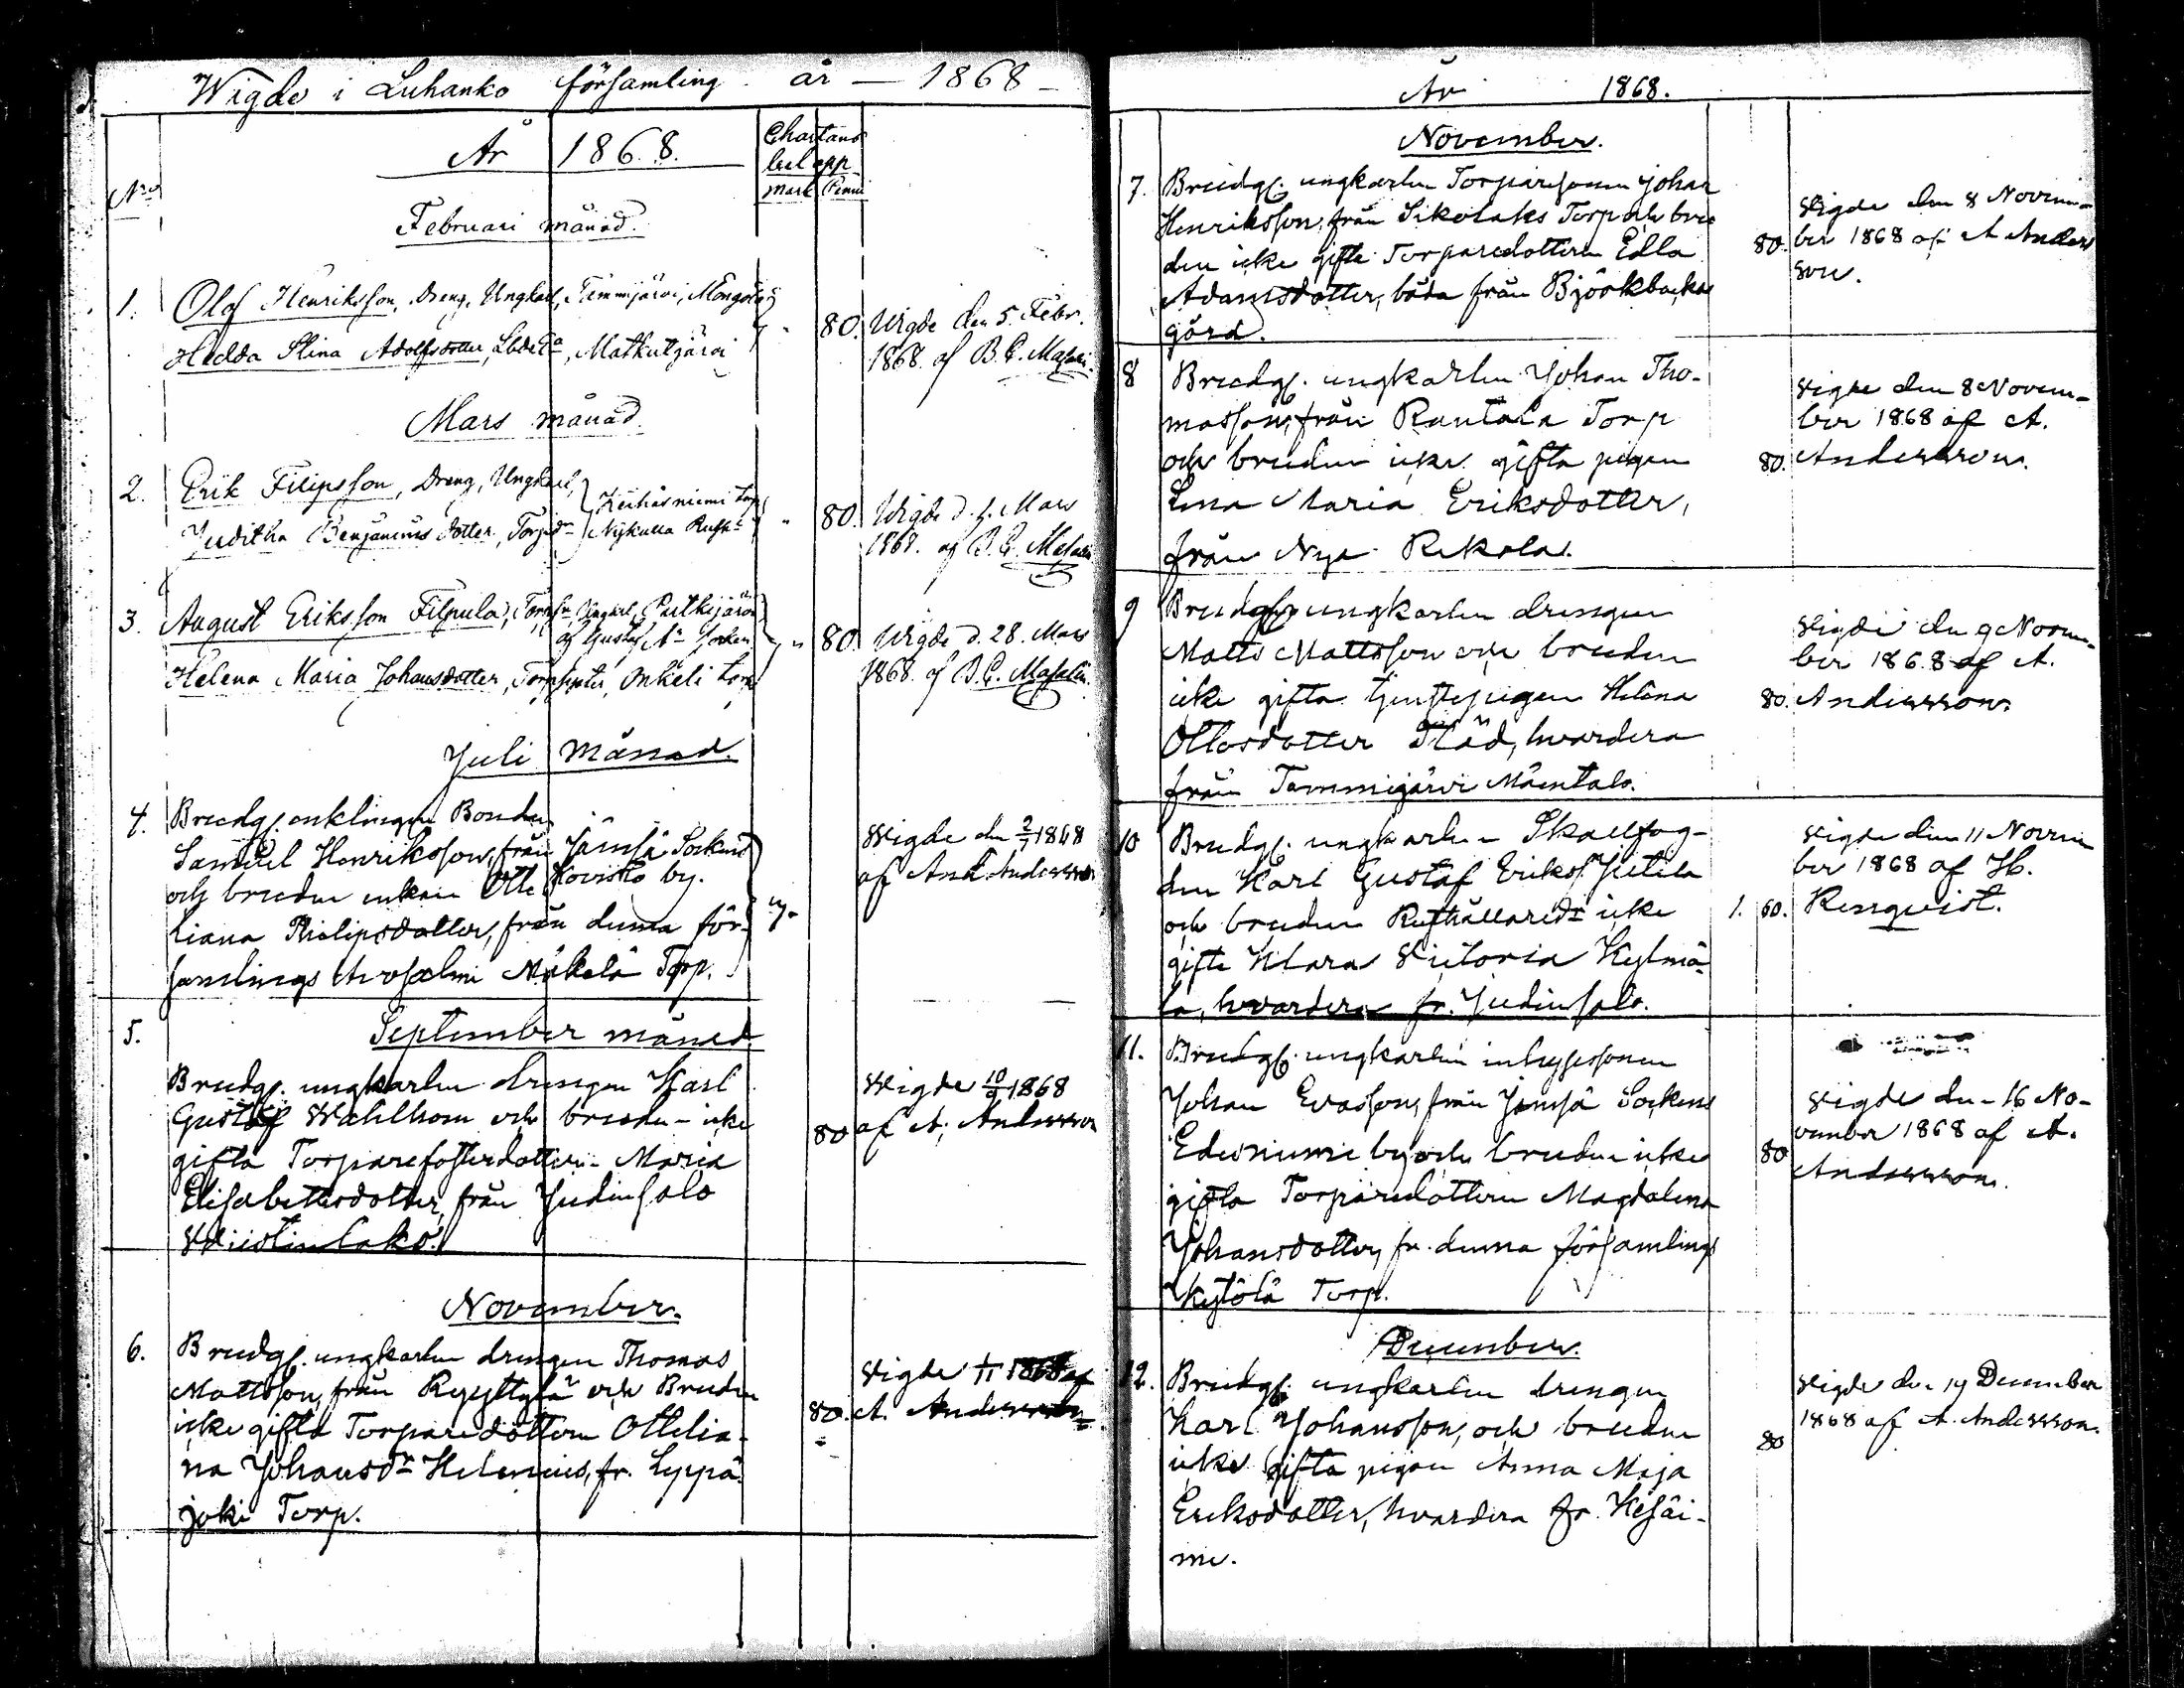 Wigde i Luhanko församling år — 1868 —
No
År 1868.
Chartans
bel opp
mark Penni
Februari månad.
1. Olof Henriksson, Dreng, Ungkarl, Tammijärvi,
Hedda Stina Adolfsdotter, Matkutjärvi
80. Wigde den 5. Febr.
1868. af B. G. Masalin
Mars månad.
2. Erik Filipsson, Dreng, Ungkarl,
Juditha Benjaminsdotter,
Keihäsniemi torp
80. Wigde d. 1. Mars
1868. af B. G. Masalin
3. August Eriksson Filpula, Ungkarl,
Helena Maria Johansdotter, Onkeli torp
80. Wigde d. 28. Mars
1868. af B. G. Masalin
Juli månad.
4. Brudg. enklingen Bonden
Samuel Henriksson, från Jämsä Sockens
och bruden enkan Otte Kovisto by.
liana Philipsdotter, från denna för-
samlings Arvosalmi Mäkelä Torp.
Vigde den 2/7 1868
af And. Andersson
5. September månad.
Brudg. ungkarlen drengen Karl
Gustaf Wahlhom och bruden icke
gifta Torparefosterdottern Maria
Elisabethsdotter, från Judinsalo
80 Vigde 10/9 1868
af A. Andersson
November.
6. Brudg. ungkarlen drengen Thomas
Mattsson, från Ryyttylä och Bruden
icke gifta Torparedottern Ottilia-
na Johansdr Helenius, fr. Leppä-
joki Torp.
80. Vigde 1/11 1868 af
A. Andersson
År 1868.
November.
7. Brudg. ungkarlen Torparesonen Johan
Henriksson, från Sikolaks Torp och bru
den icke gifte Torparedottern Edla
Adamsdotter, båda från Björkbacka
gård.
80. Vigde den 8 Novem-
ber 1868 af A Anders
son.
8 Brudg. ungkarlen Johan Tho-
masson, från Rantala Torp
och bruden icke gifta pigan
Lena Maria Eriksdotter,
från Nya Rekola.
80. Vigde den 8 Novem-
ber 1868 af A.
Andersson.
9 Brudg. ungkarlen drengen
Matts Mattsson och bruden
icke gifta tjenstepigan Helena
Ottosdotter Städ, hvardera
från Tammijärvi Mäentalo.
80. Vigde den 9 Novem-
ber 1868 af A.
Andersson.
10 Brudg. ungkarlen Skallfog-
den Karl Gustaf Eriks. Jutila
och bruden Rusthållaredr icke
gifte Klara Victoria Kylmä-
lä, hvardera fr. Judinsalo.
1. 60. Vigde den 11 Novem
ber 1868 af H.
Renqvist.
11. Brudg. ungkarlen inhysessonen
Johan Evasson, från Jämsä Sockens
Edesniemi by och bruden icke
gifta Torparedottern Magdalena
Johansdotter, fr. denna församlings
Kytölä Torp.
80 Vigde den 16 No-
vember 1868 af A.
Andersson.
December.
12. Brudg. ungkarlen drengen
Karl Johansson, och bruden
icke gifta pigan Anna Maja
Eriksdotter, hvardera fr. Kesäi-
mi.
80 Vigde den 19 December
1868 af A. Andersson.